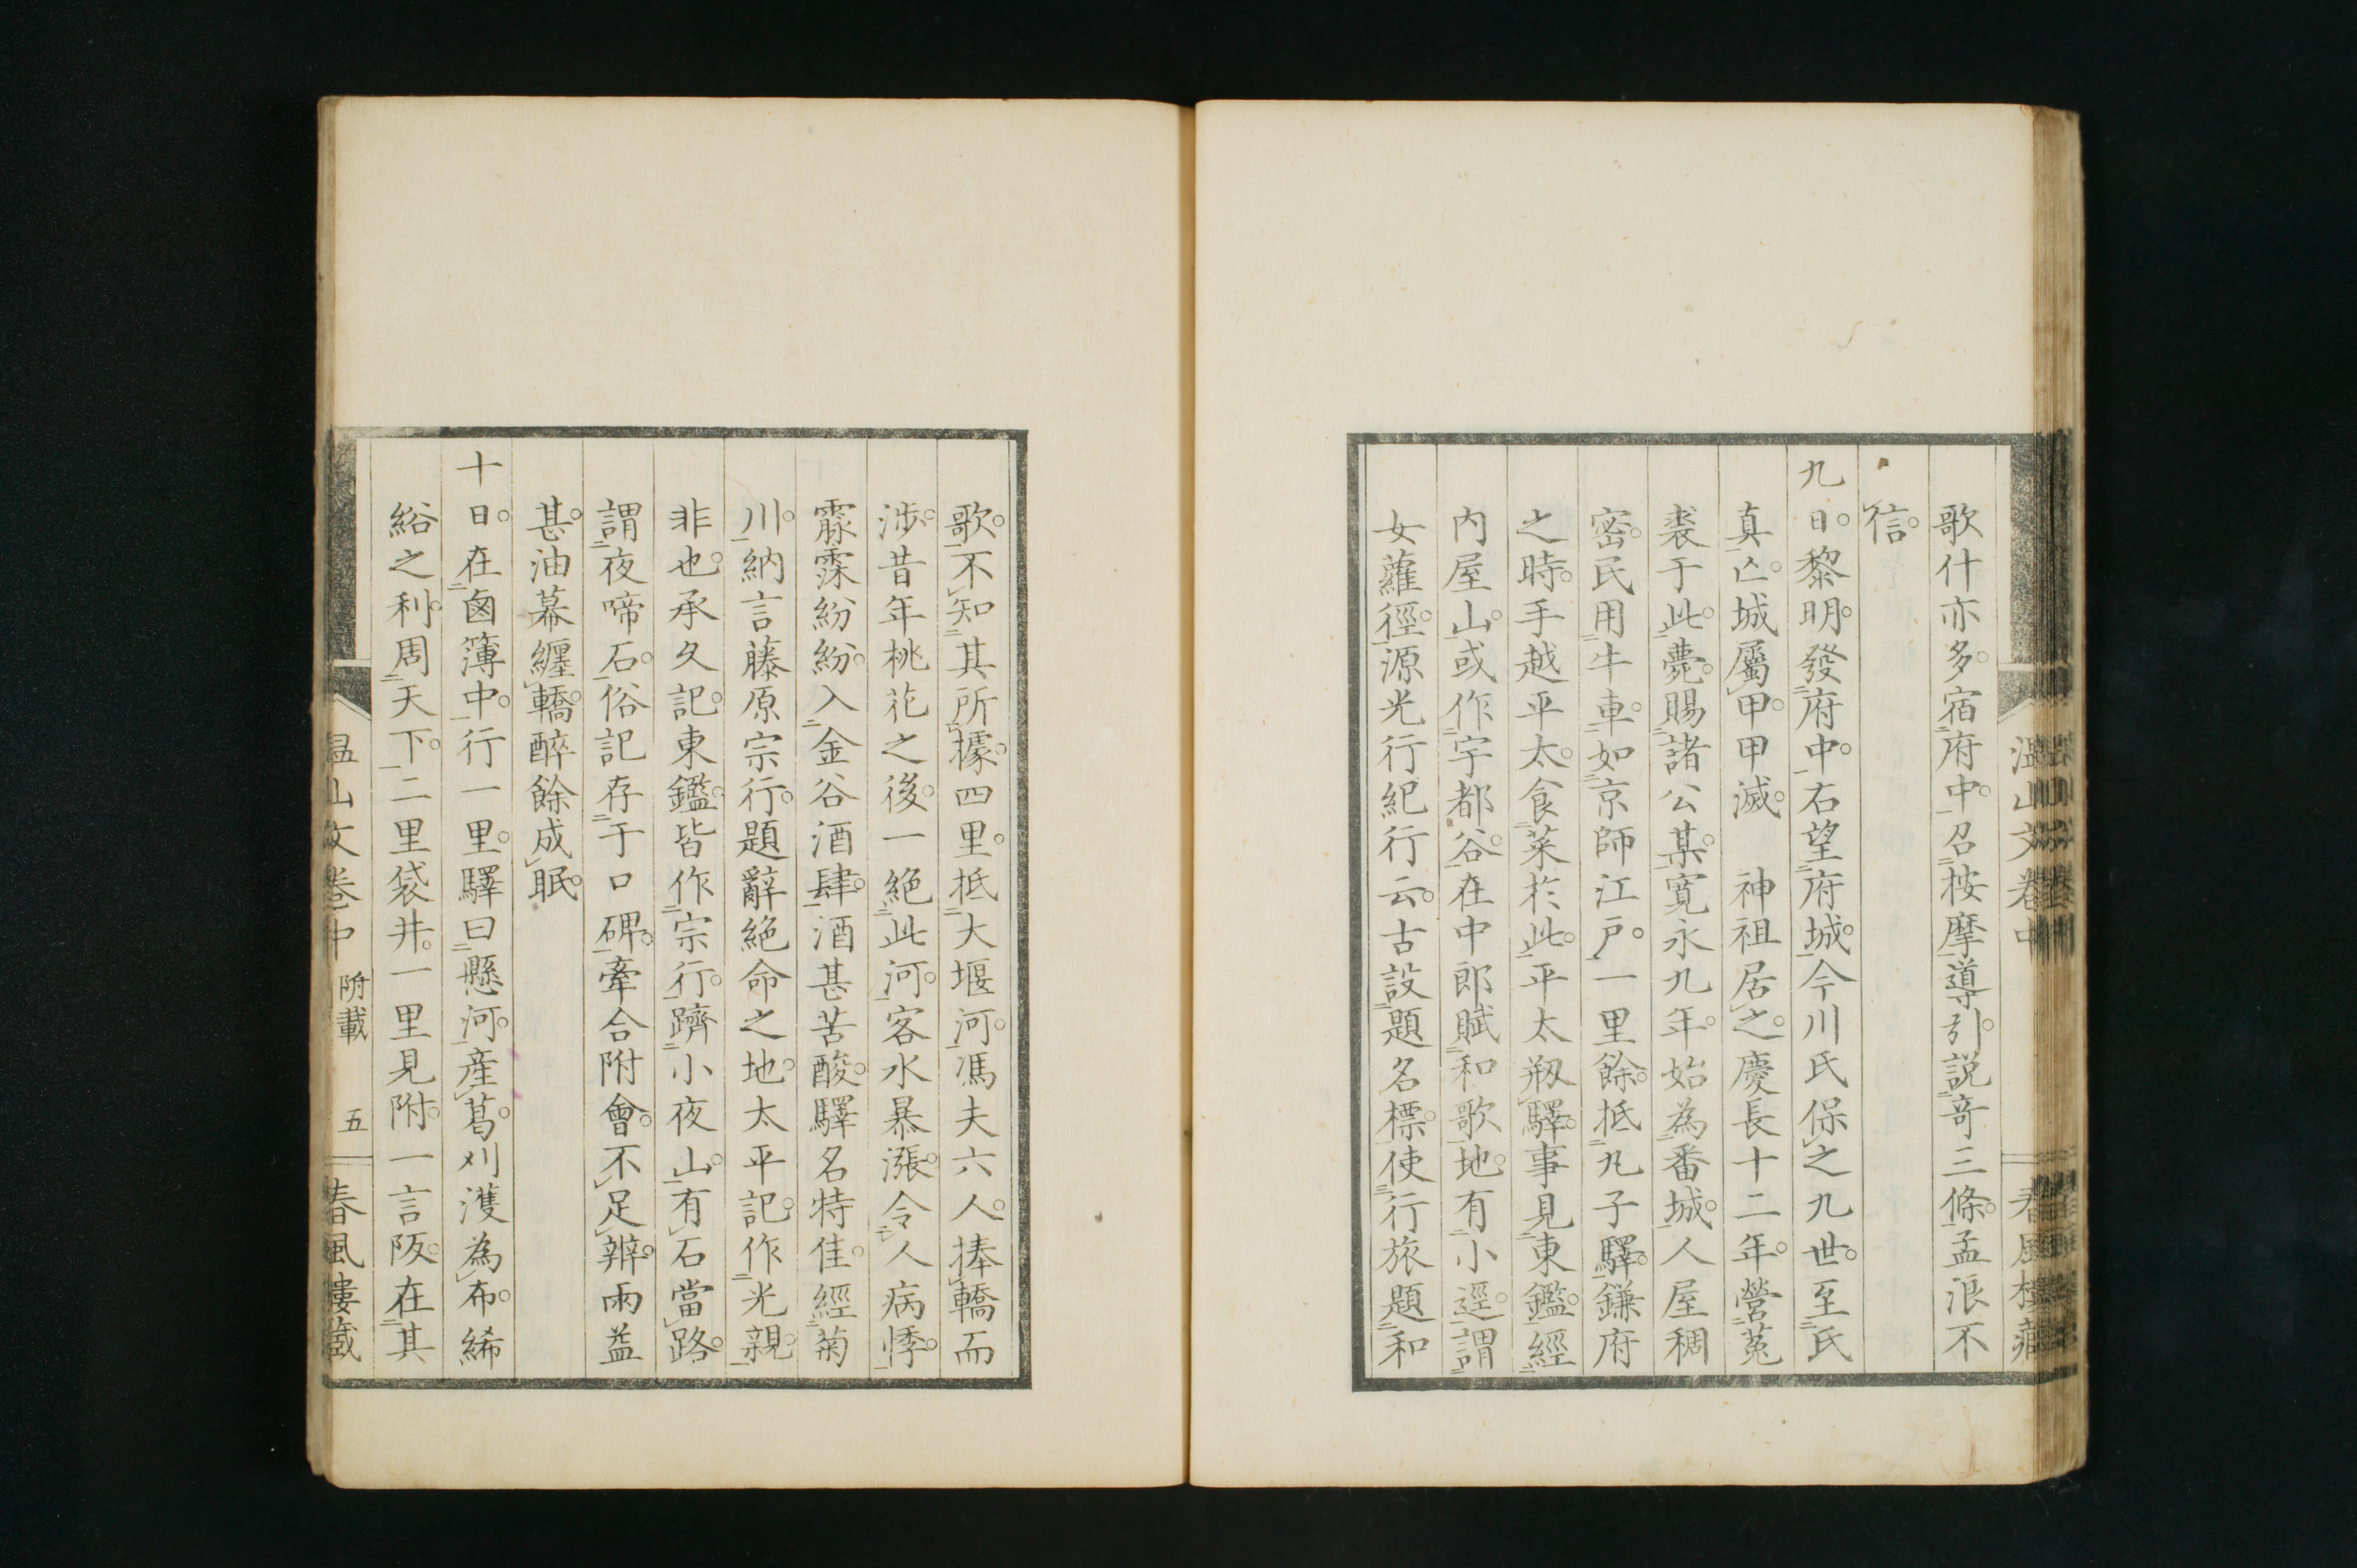 歌什亦多。宿府中。召按摩導引。説奇三條。孟浪不
信。
九日。黎明。發府中。右望府城。今川氏保之九世。至氏
真亡。城屬甲。甲滅。　神祖居之。慶長十二年。營菟
裘于此。薨。賜諸公某。寛永九年。始為番城。人屋稠
密。民用牛車。如京師江戸。一里餘。抵丸子驛。鎌府
之時。手越平太。食菜於此。平太叛驛。事見東鑑。經
内屋山。或作宇都谷。在中郎賦和歌地。有小逕。謂
女蘿徑。源光行紀行云。古設題名標。使行旅題和
歌。不知其所據。四里。抵大堰河。馮夫六人。捧轎而
渉。昔年桃花之後。一絶此河。客水暴漲。令人病悸。
霢霂紛紛。入金谷酒肆。酒甚苦酸。驛名特佳。經菊
川。納言藤原宗行。題辭絶命之地。太平記。作光親。
非也。承久記。東鑑。皆作宗行。躋小夜山。有石當路。
謂夜啼石。俗記存于口碑。牽合附會。不足辨。雨益
甚。油幕纒轎。醉餘成眠。
十日。在鹵簿中。行一里。驛曰懸河。産葛。刈濩為布。絺
綌之利。周天下。二里袋井。一里見附。一言阪。在其
温山文卷中　附載　五　春風樓藏